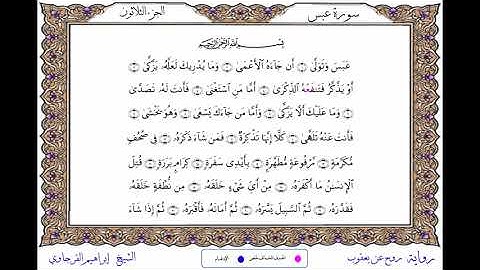 سورة عبس
الجزء الثلاثون
بِسْمِ اللَّهِ الرَّحْمَٰنِ الرَّحِيمِ
عَبَسَ وَتَوَلَّىٰ ۝ أَن جَاءَهُ الْأَعْمَىٰ ۝ وَمَا يُدْرِيكَ لَعَلَّهُۥ يَزَّكَّىٰ ۝
أَوْ يَذَّكَّرُ فَتَنفَعُهُ الذِّكْرَىٰ ۝ أَمَّا مَنِ اسْتَغْنَىٰ ۝ فَأَنتَ لَهُۥ تَصَدَّىٰ
۝ وَمَا عَلَيْكَ أَلَّا يَزَّكَّىٰ ۝ وَأَمَّا مَن جَاءَكَ يَسْعَىٰ ۝ وَهُوَ يَخْشَىٰ ۝
فَأَنتَ عَنْهُ تَلَهَّىٰ ۝ كَلَّا إِنَّهَا تَذْكِرَةٌ ۝ فَمَن شَاءَ ذَكَرَهُۥ ۝ فِي صُحُفٍ
مُّكَرَّمَةٍ ۝ مَّرْفُوعَةٍ مُّطَهَّرَةٍ ۝ بِأَيْدِي سَفَرَةٍ ۝ كِرَامٍ بَرَرَةٍ ۝ قُتِلَ
الْإِنسَٰنُ مَا أَكْفَرَهُۥ ۝ مِنْ أَيِّ شَيْءٍ خَلَقَهُۥ ۝ مِن نُّطْفَةٍ خَلَقَهُۥ
فَقَدَّرَهُۥ ۝ ثُمَّ السَّبِيلَ يَسَّرَهُۥ ۝ ثُمَّ أَمَاتَهُۥ فَأَقْبَرَهُۥ ۝ ثُمَّ إِذَا شَاءَ
رواية روح عن يعقوب
الشيخ إبراهيم الفرجاوي